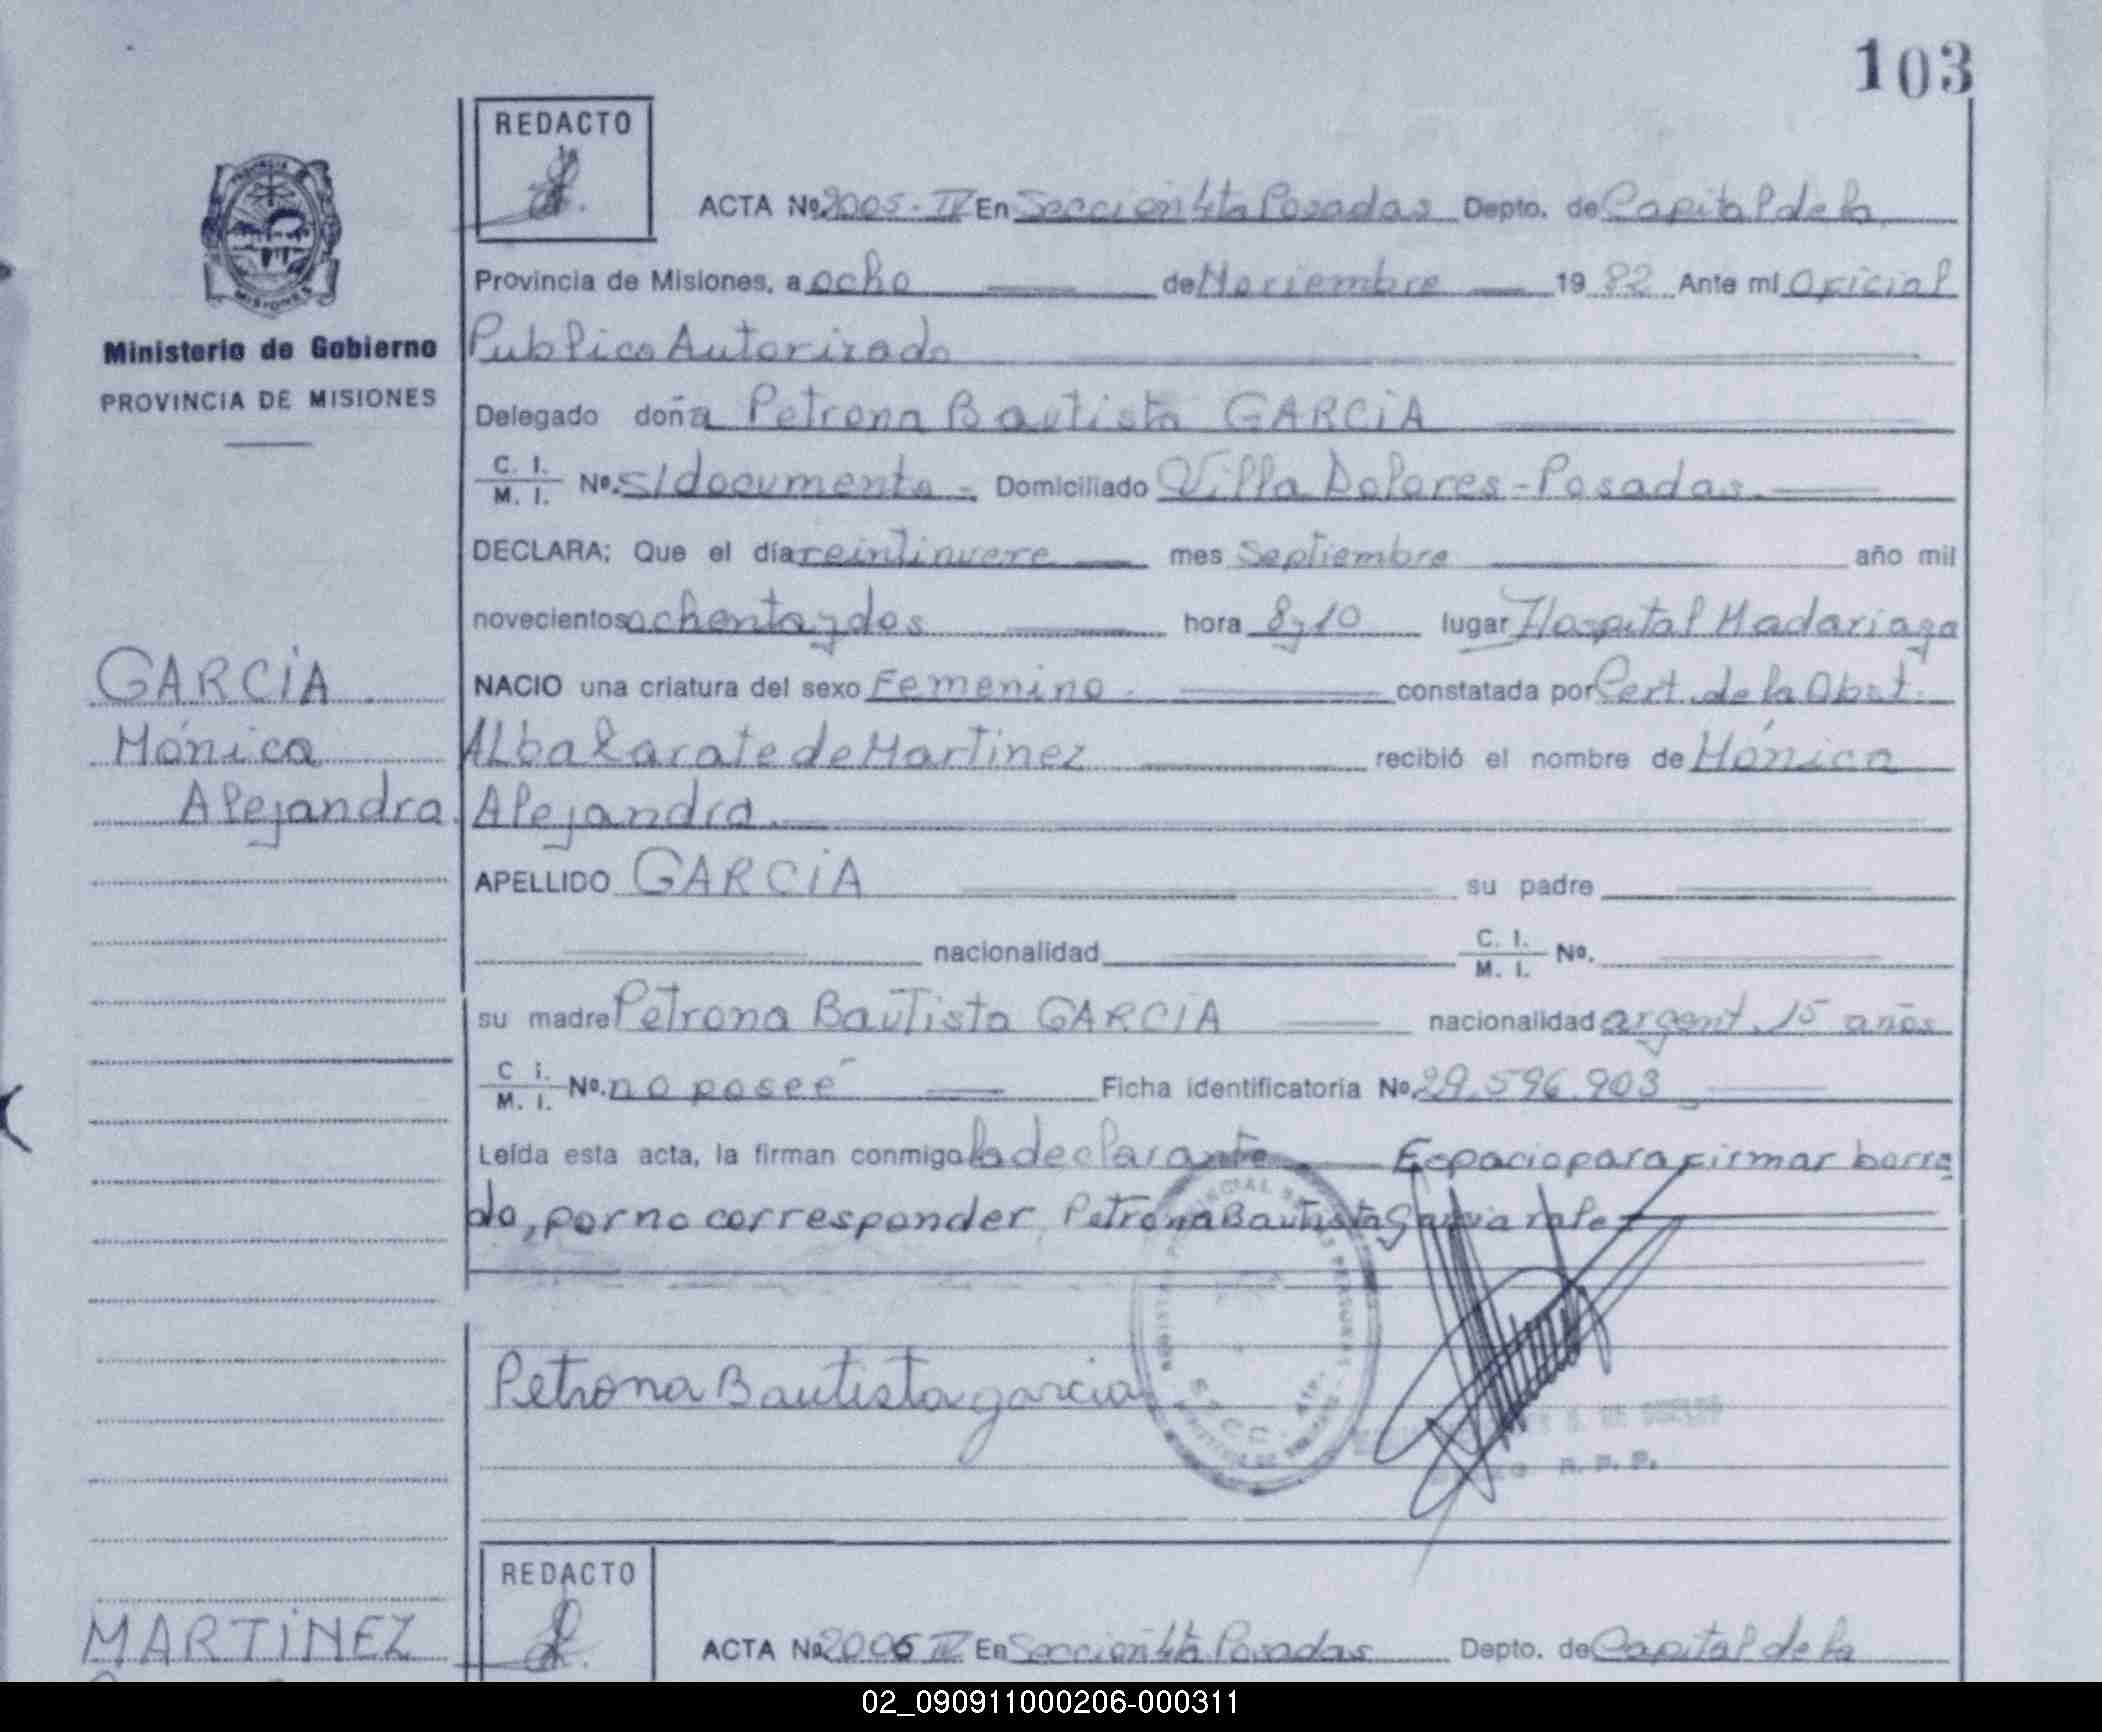 103
REDACTO
ACTA Nº 2005-IV En Sección 4ta Posadas Depto. de Capital de la
Provincia de Misiones, a ocho de Noviembre 1982 Ante mi Oficial
Ministerio de Gobierno
Publico Autorizado
PROVINCIA DE MISIONES
Delegado doña Petrona Bautista GARCIA
C. I. M. I. Nº. s/documento - Domiciliado Villa Dolores - Posadas.
DECLARA: Que el día veintinueve mes Septiembre año mil
novecientos ochenta y dos hora 8 y 10 lugar Hospital Madariaga
GARCIA
NACIO una criatura del sexo Femenino. constatada por Cert. de la Obst.
Mónica
Alba Zarate de Martinez recibió el nombre de Mónica
Alejandra.
Alejandra.
APELLIDO GARCIA su padre
nacionalidad C. I. M. I. Nº.
su madre Petrona Bautista GARCIA nacionalidad argent. 15 años
C i. M. I. Nº. no posee Ficha identificatoria Nº 29.596.903
Leída esta acta, la firman conmigo la declarante Espacio para firmar borra
do, por no corresponder Petrona Bautista Garcia vale
Petrona Bautista garcia
R. P. P.
REDACTO
MARTINEZ
ACTA Nº 2006 IV En Sección 4ta Posadas Depto. de Capital de la
02_090911000206-000311